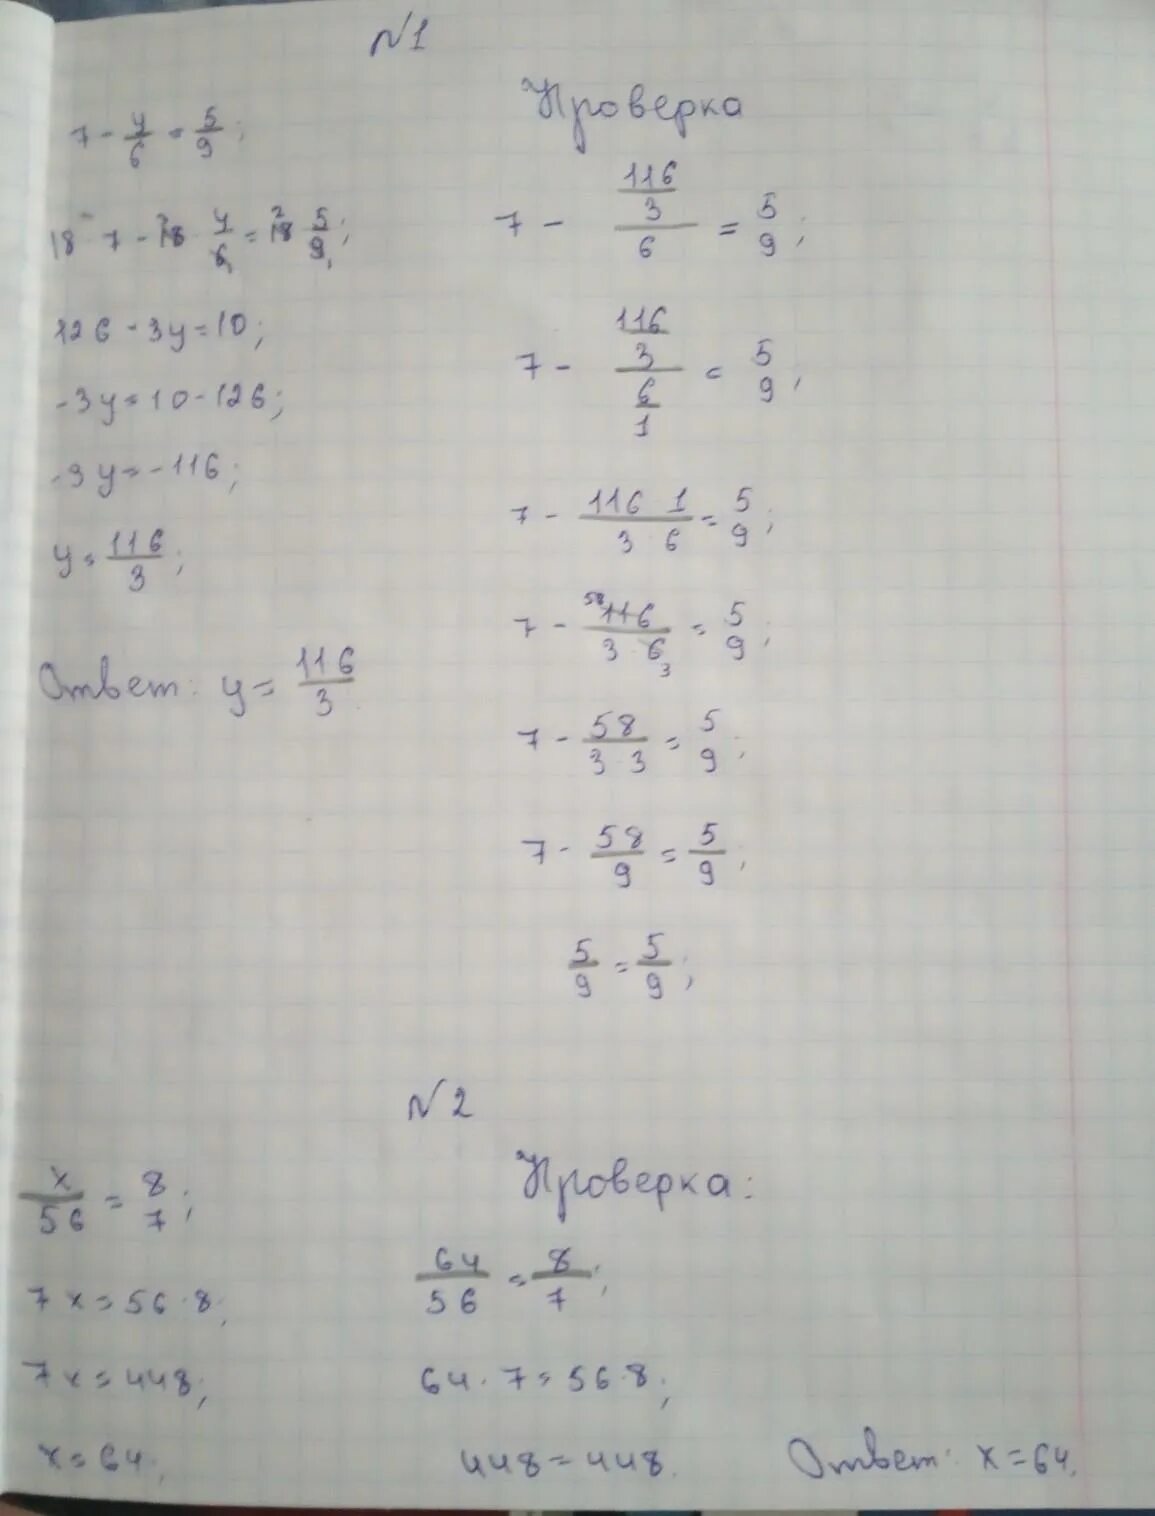 №1
7 - y/6 = 5/9;
18 · 7 - 18 · y/6 = 18 5/9;
126 - 3y = 10;
-3y = 10 - 126;
-3y = -116;
y = 116/3;
Ответ: y = 116/3
Проверка
7 - (116/3)/6 = 5/9;
7 - (116/3)/(6/1) = 5/9;
7 - (116 · 1)/(3 · 6) = 5/9;
7 - 116/(3 · 6) = 5/9;
7 - 58/(3 · 3) = 5/9;
7 - 58/9 = 5/9;
5/9 = 5/9;
№2
x/56 = 8/7;
7x = 56 · 8;
7x = 448;
x = 64;
Проверка:
64/56 = 8/7;
64 · 7 = 56 · 8;
448 = 448.
Ответ: x = 64.